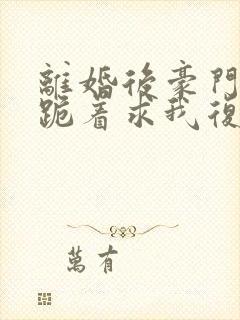 離婚後豪門
跪着求我復
萬有